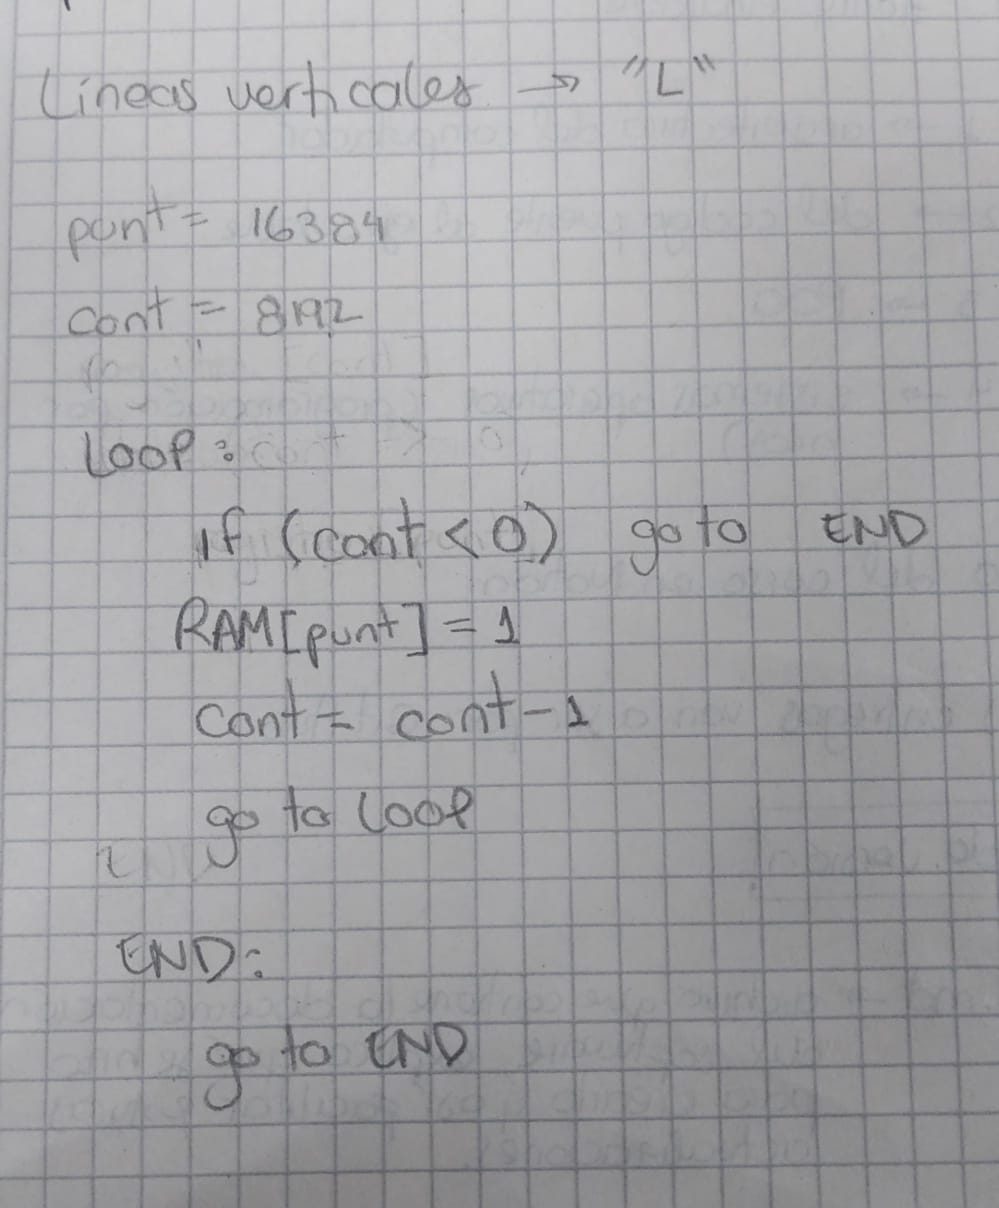 Líneas verticales → "L"
punt = 16384
cont = 8192
Loop:
if (cont < 0) go to END
RAM[punt] = 1
cont = cont - 1
go to Loop
END:
go to END